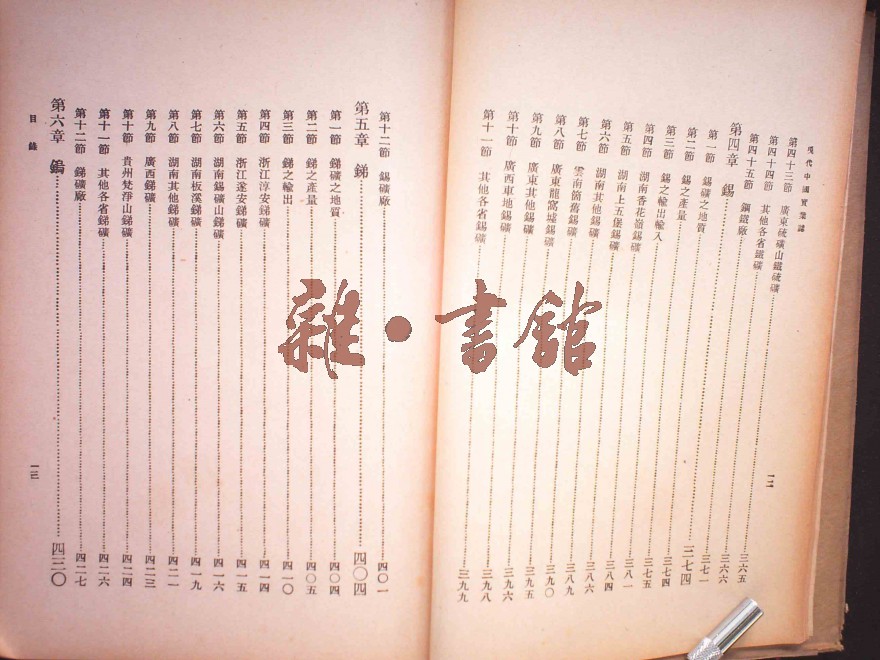 現代中國實業誌
第四十三節 廣東硫礦山鐵硫礦……三六五
第四十四節 其他各省鐵礦……三六六
第四十五節 鋼鐵廠……三七一
第四章 錫……三七四
第一節 錫礦之地質……三七四
第二節 錫之產量……三七五
第三節 錫之輸出輸入……三八一
第四節 湖南香花嶺錫礦……三八四
第五節 湖南上五堡錫礦……三八六
第六節 湖南其他錫礦……三八九
第七節 雲南箇舊錫礦……三九〇
第八節 廣東龍窩墟錫礦……
第九節 廣東其他錫礦……三九六
第十節 廣西車地錫礦……三九八
第十一節 其他各省錫礦……三九九
一二
第十二節 錫礦廠……四〇一
第五章 銻……四〇四
第一節 銻礦之地質……四〇四
第二節 銻之產量……四〇五
第三節 銻之輸出……四一〇
第四節 浙江淳安銻礦……四一四
第五節 浙江遂安銻礦……四一五
第六節 湖南錫礦山銻礦……四一六
第七節 湖南板溪銻礦……四一九
第八節 湖南其他銻礦……四二一
第九節 廣西銻礦……四二三
第十節 貴州梵淨山銻礦……四二四
第十一節 其他各省銻礦……四二六
第十二節 銻礦廠……四二七
第六章 鎢……四三〇
目錄
一三
雜·書館